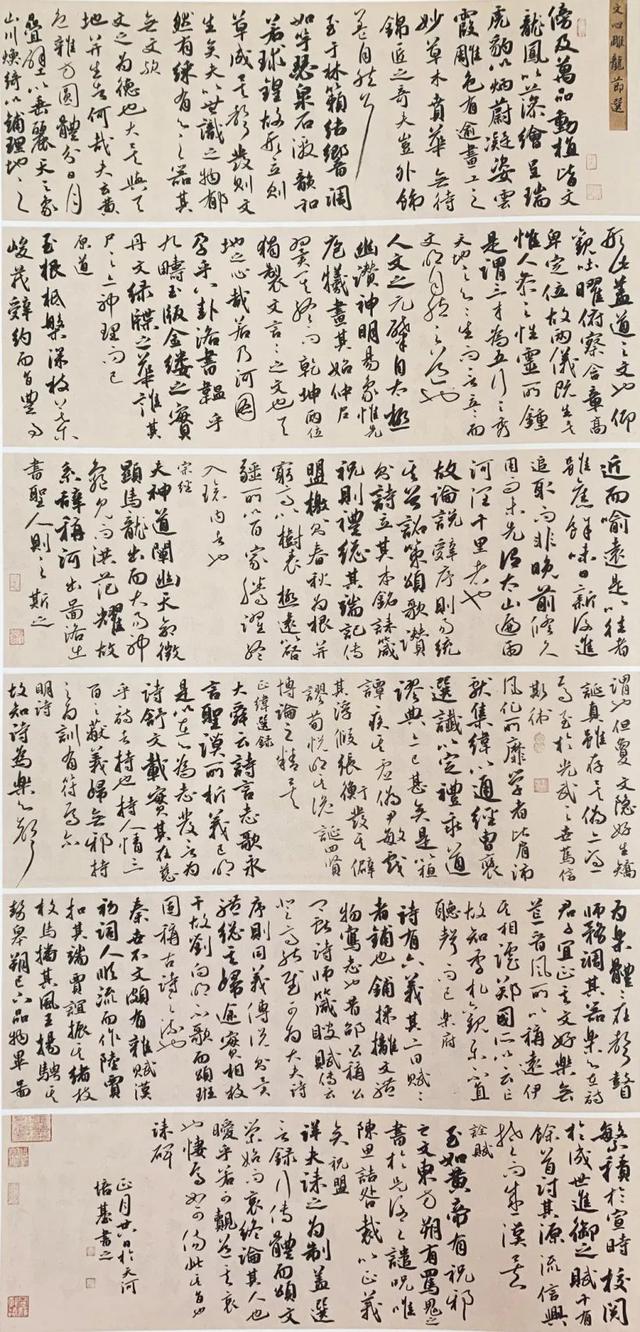 文心雕龍節選
傍及萬品動植皆文
龍鳳以藻繪呈瑞
虎豹以炳蔚凝姿雲
霞雕色有逾畫工之
妙草木賁華無待
錦匠之奇夫豈外飾
蓋自然爾
至于林籟結響調
如竽瑟泉石激韻和
若球鍠故形立則
章成矣聲發則文
生矣夫以無識之物郁
然有彩有心之器其
無文歟
文之為德也大矣與天
地並生者何哉夫玄黃
色雜方圓體分日月
疊璧以垂麗天之象
山川煥綺以鋪理地之
形此蓋道之文也仰
觀吐曜俯察含章高
卑定位故兩儀既生矣
惟人參之性靈所鍾
是謂三才為五行之秀
天地之心心生而言立言立而
文明自然之道也
人文之元肇自太極
幽讚神明易象惟先
庖犧畫其始仲尼
翼其終而乾坤兩位
獨製文言言之文也天
地之心哉若乃河圖
孕乎八卦洛書韞乎
九疇玉版金鏤之實
丹文綠牒之華誰其
尸之亦神理而已
原道
至根柢槃深枝葉
峻茂辭約而旨豐事
近而喻遠是以往者
雖舊餘味日新後進
追取而非晚前修久
用而未先可謂太山遍雨
河潤千里者也
故論說辭序則易統
其首詔策頌歌讚
則詩立其本銘誄箴
祝則禮總其端記傳
盟檄則春秋為根並
窮高以樹表極遠以啟
疆所以百家騰躍終
入環內者也
宗經
夫神道闡幽天命微
顯馬龍出而大易興神
龜見而洪範耀故
系辭稱河出圖洛出
書聖人則之斯之
謂也但世夐文隱好生矯
誕真雖存矣偽亦憑
焉至於光武之世篤信
斯術
風化所靡學者比肩沛
獻集緯以通經曹褒
選讖以定禮乖道
謬典亦已甚矣是以桓
譚疾其虛偽尹敏戲
其浮假張衡發其僻
謬荀悅明其詭誕四賢
博論之精矣
正緯選錄
大舜云詩言志歌永
言聖謨所析義已明
是以在心為志發言為
詩舒文載實其在茲
乎詩者持也持人情三
百之蔽義歸無邪持
之為訓有符焉爾
明詩
故知詩為樂心聲
為樂體體在聲瞽
師務調其器樂心在詩
君子宜正其文好樂無
荒晉風所以稱遠伊
其相謔鄭國所以云亡
故知季札觀樂不直
聽聲而已樂府
詩有六義其二曰賦賦
者鋪也鋪採摛文體
物寫志也昔邵公稱公
卿獻詩師箴瞍賦傳云
登高能賦可為大夫詩
序則同義傳說則異
體總其歸塗實相枝
干故劉向明不歌而頌班
固稱古詩之流也
秦世不文頗有雜賦漢
初詞人順流而作陸賈
扣其端賈誼振其緒枚
馬播其風王揚騁其
勢皋朔已下品物畢圖
繁積於宣時校閱
於成世進御之賦千有
餘首討其源流信興
楚而盛漢矣
詮賦
至如黃帝有祝邪
之文東方朔有罵鬼之
書於是後之譴咒唯
陳思詰咎裁以正義
矣祝盟
詳夫誄之為制蓋選
言錄行傳體而頌文
榮始而哀終論其人也
曖乎若可覿道其哀
也悽焉如可傷此其旨也
誄碑
正月廿八日於天河
培基書之